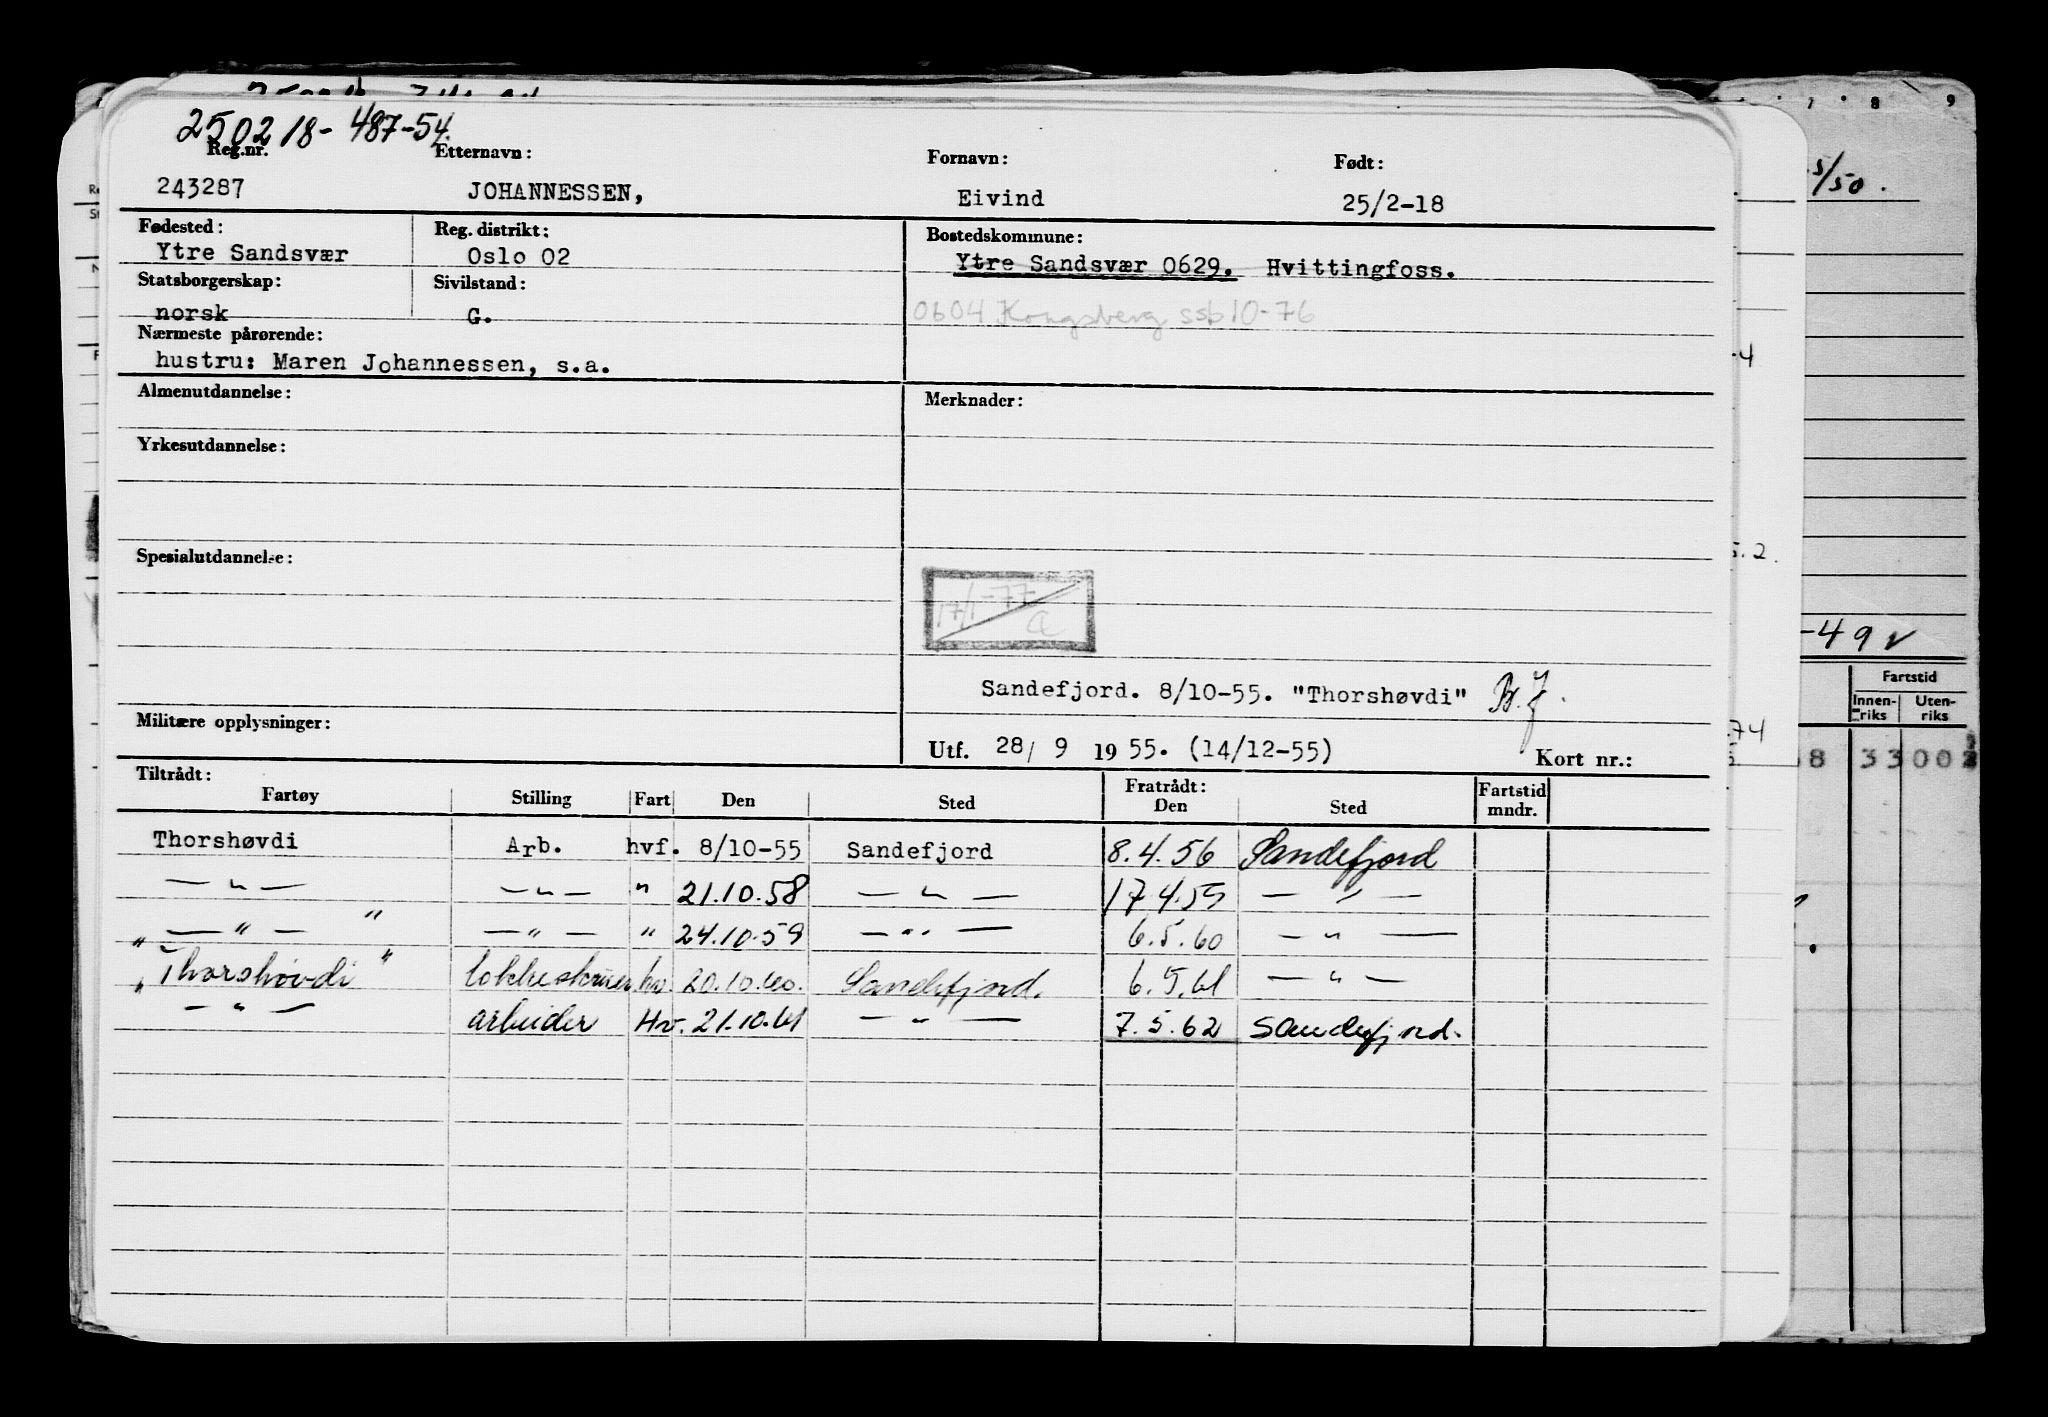 250218-487-54.
Reg.nr. Etternavn: Fornavn: Født:
243287 JOHANNESSEN, Eivind 25/2-18
Fødested: Reg. distrikt: Bostedskommune:
Ytre Sandsvær Oslo 02 Ytre Sandsvær 0629. Hvittingfoss.
Statsborgerskap: Sivilstand:
norsk G. 0604 Kongsberg ssb 10-76
Nærmeste pårørende:
hustru: Maren Johannessen, s.a.
Almenutdannelse: Merknader:
Yrkesutdannelse:
Spesialutdannelse:
17/1-77
Sandefjord. 8/10-55. "Thorshøvdi"
Militære opplysninger:
Utf. 28/ 9 1955. (14/12-55) Kort nr.:
Tiltrådt: Fratrådt:
Fartøy Stilling Fart Den Sted Den Sted Fartstid mndr.
Thorshøvdi Arb. hvf. 8/10-55 Sandefjord 8.4.56 Sandefjord
— " — — " — " 21.10.58 — " — 17.4.59 — " —
— " — " — " — " 24.10.59 — " — 6.5.60 — " —
" Thorshøvdi " hv. 20.10.60. Sandefjord. 6.5.61 — " —
— " — arbeider Hv. 21.10.61 — " — 7.5.62 Sandefjord.
7 8 9
5/50.
-4
5.2.
-49 v
Fartstid
Innen-riks Uten-riks
74
8 33002